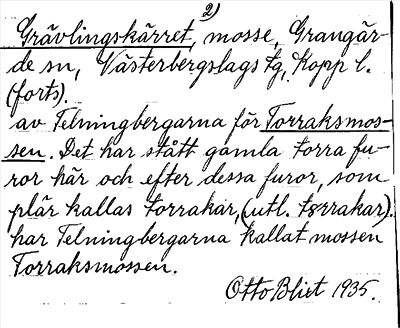 2)
Grävlingskärret, mosse, Grangär-
de sn, Västerbergslags tg, Kopp l.
(forts).
av Telningbergarna för Torraksmos-
sen. Det har stått gamla torra fu-
ror här och efter dessa furor, som
plär kallas torrakar, (utl. tørrakar).
har Telningbergarna kallat mossen
Torraksmossen.
Otto Blixt 1935.